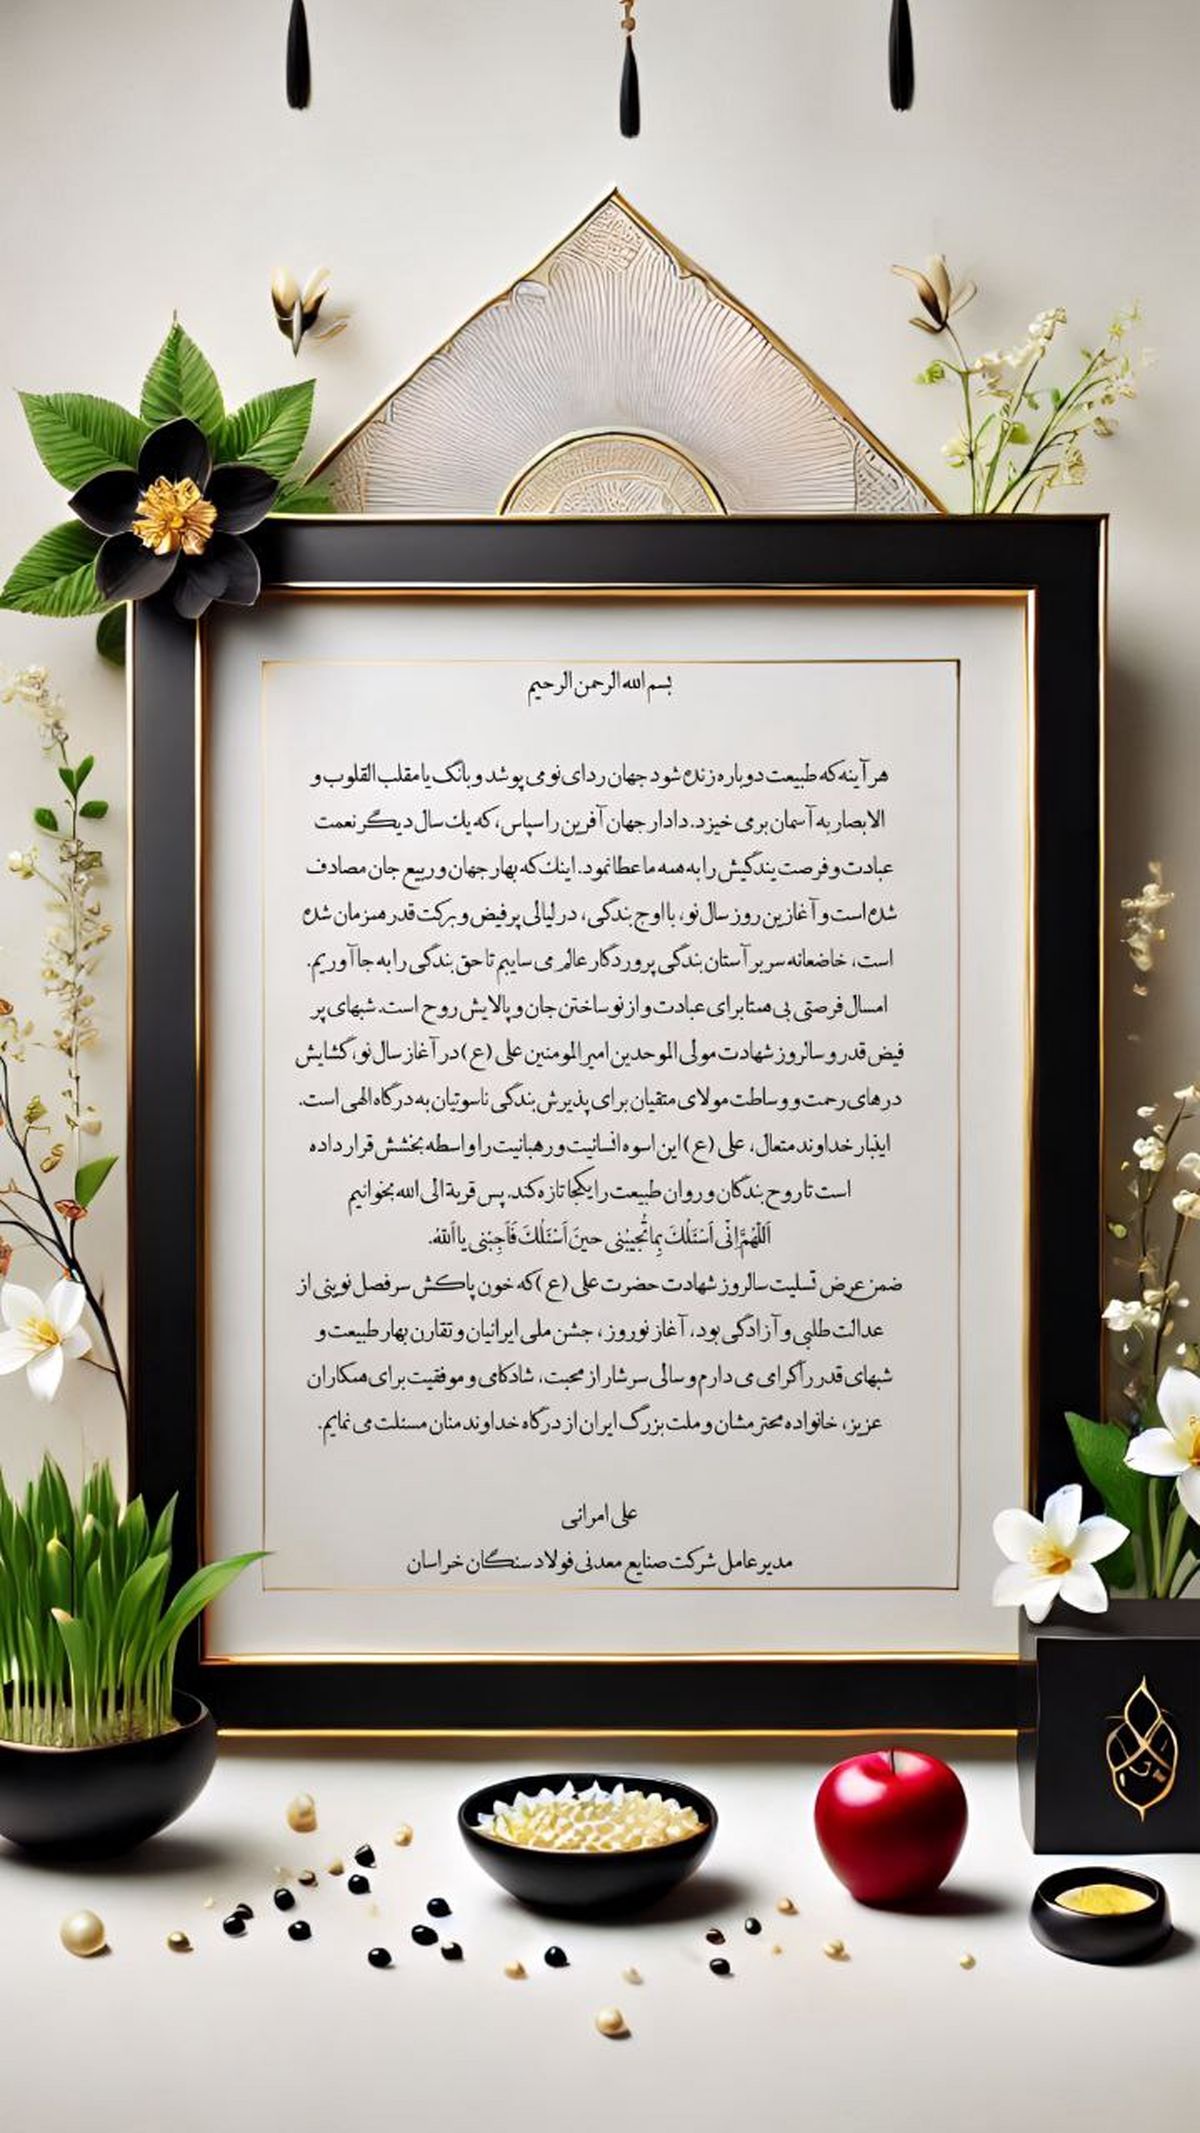 بسم الله الرحمن الرحیم
هر آینه که طبیعت دوباره زنده شود جهان ردای نو می پوشد و بانگ یا مقلب القلوب و
الابصار به آسمان بر می خیزد. دادار جهان آفرین را سپاس، که یك سال دیگر نعمت
عبادت و فرصت بندگیش را به همه ما عطا نمود. اینك که بهار جهان و ربیع جان مصادف
شده است و آغازین روز سال نو، با اوج بندگی، در لیالی پر فیض و برکت قدر همزمان شده
است، خاضعانه سر بر آستان بندگی پروردگار عالم می ساییم تا حق بندگی را به جا آوریم.
امسال فرصتی بی همتا برای عبادت و از نو ساختن جان و پالایش روح است. شبهای پر
فیض قدر و سالروز شهادت مولی الموحدین امیر المومنین علی (ع) در آغاز سال نو، گشایش
درهای رحمت و وساطت مولای متقیان برای پذیرش بندگی ناسوتیان به درگاه الهی است.
اینبار خداوند متعال، علی (ع) این اسوه انسانیت و رهبانیت را واسطه بخشش قرار داده
است تا روح بندگان و روان طبیعت را یکجا تازه کند. پس قربة الی الله بخوانیم
اَللّهُمَّ اِنّی اَسْئَلُكَ بِما تُجیبُنی حینَ اَسْئَلُكَ فَاَجِبْنی یا اَللّهُ.
ضمن عرض تسلیت سالروز شهادت حضرت علی (ع) که خون پاکش سرفصل نوینی از
عدالت طلبی و آزادگی بود، آغاز نوروز، جشن ملی ایرانیان و تقارن بهار طبیعت و
شبهای قدر را گرامی می دارم و سالی سرشار از محبت، شادکامی و موفقیت برای همکاران
عزیز، خانواده محترمشان و ملت بزرگ ایران از درگاه خداوند منان مسئلت می نمایم.
علی امرانی
مدیر عامل شرکت صنایع معدنی فولاد سنگان خراسان